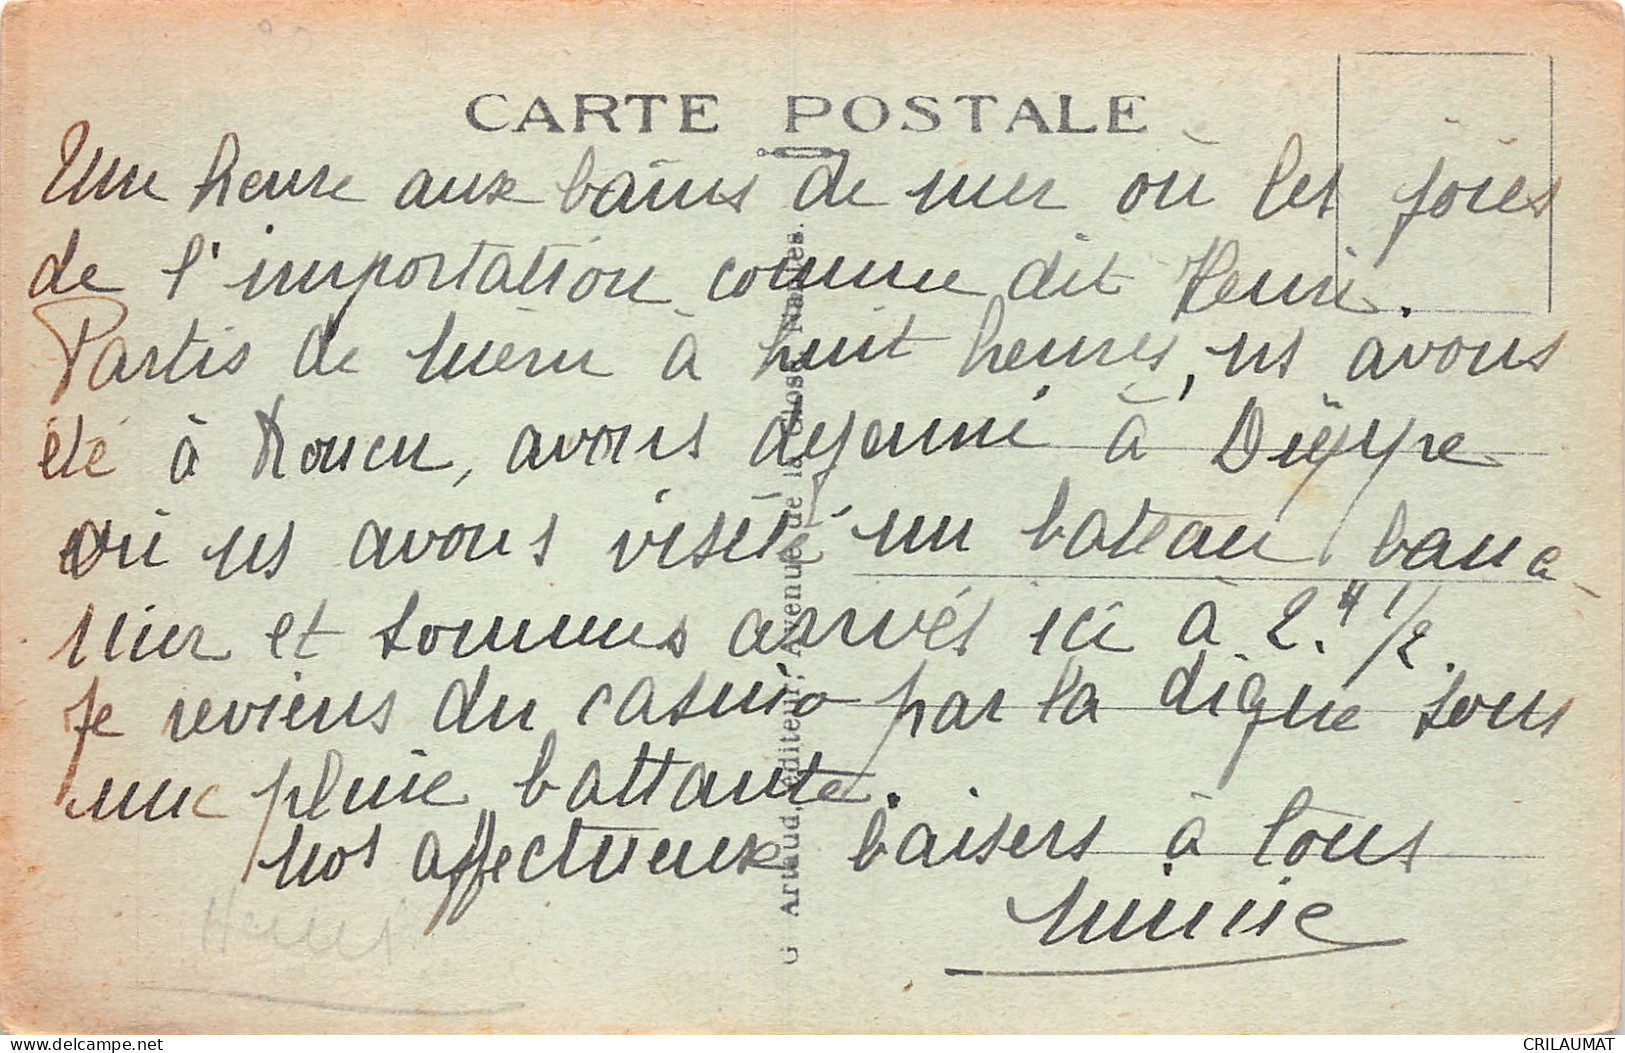 CARTE POSTALE
Une heure aux bains de mer où les joies
de l'importation comme dit Henri.
Partis de Méru à huit heures, ns avons
été à Rouen, avons dejeuné à Dieppe
où ns avons visité un bateau bana
nier et sommes arrivés ici à 2.H 1/2.
Je reviens du casino par la digue sous
une pluie battante.
Nos affectueux baisers à tous
Mimie
Henri
G Artaud, éditeur, Avenue de la Close, Nantes.
CRILAUMAT
delcampe.net